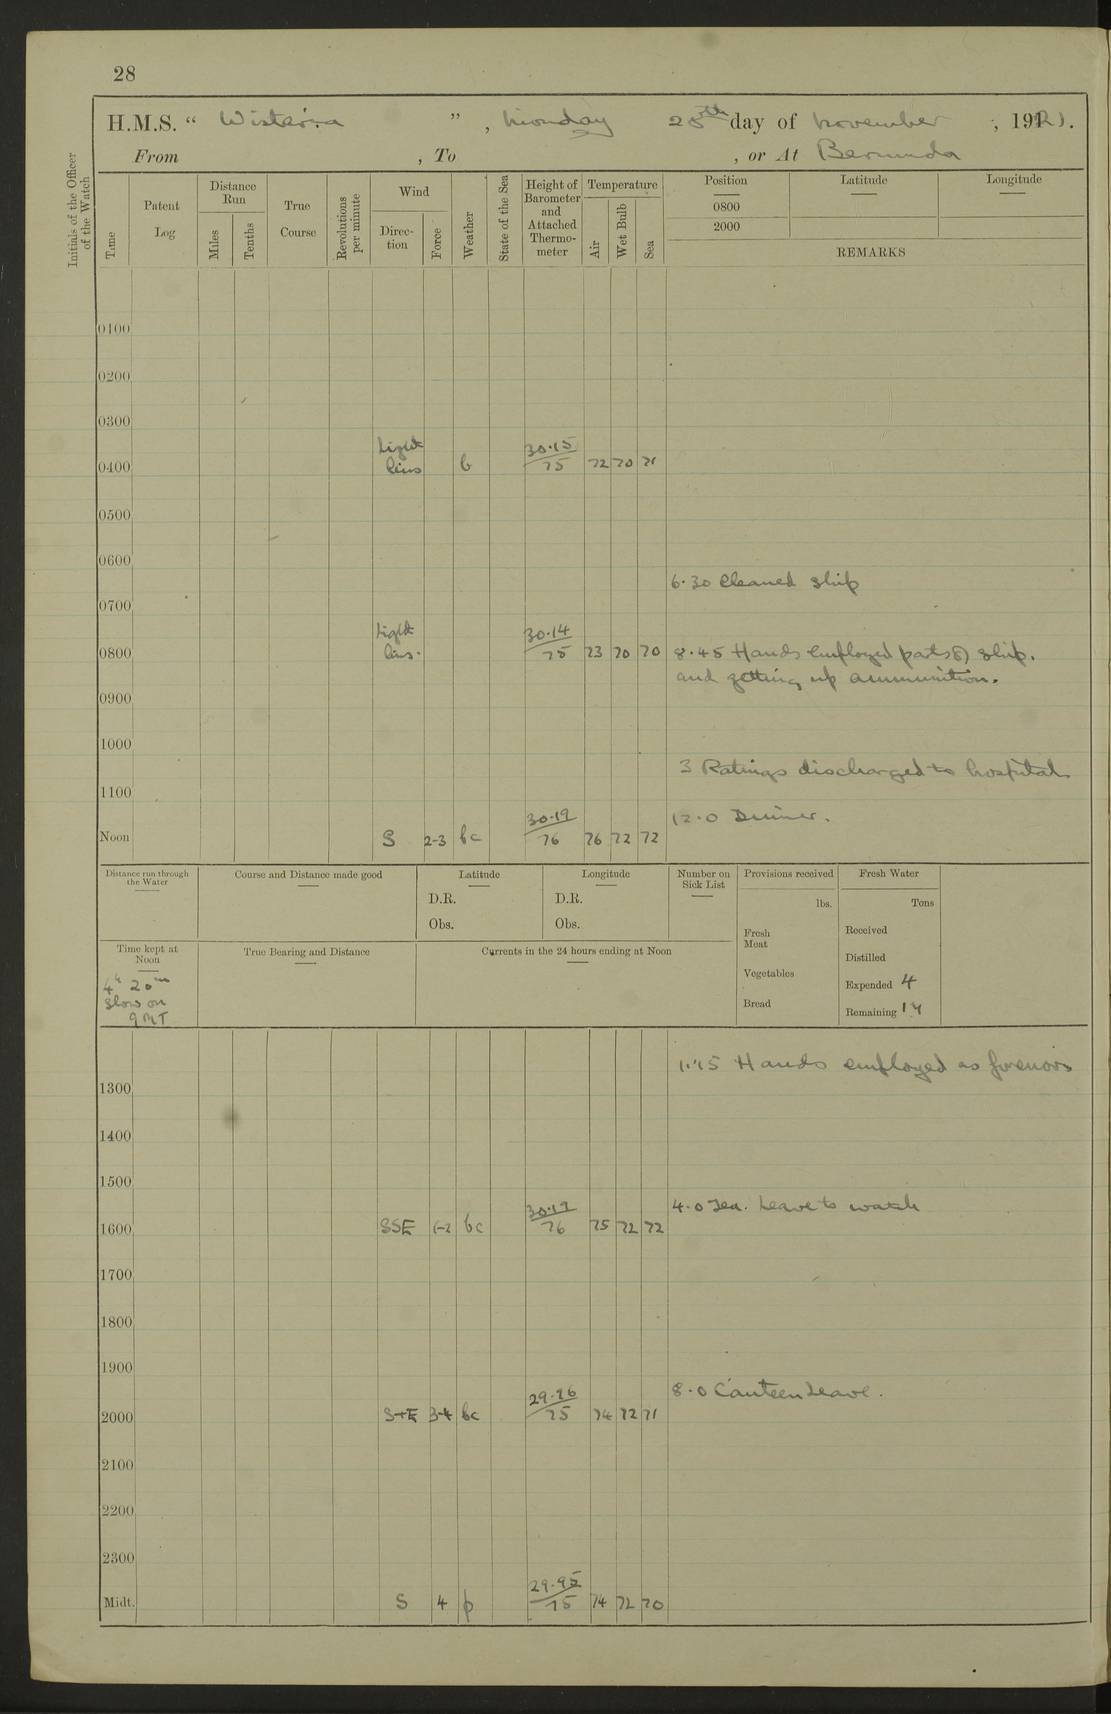 28
H.M.S. " Wisteria ", Monday 28th day of November, 1921.
From , To , or At Bermuda
Initials of the Officer of the Watch
Time
Patent Log
Distance Run
Miles
Tenths
True Course
Revolutions per minute
Wind
Direction
Force
Weather
State of the Sea
Height of Barometer and Attached Thermometer
Temperature
Air
Wet Bulb
Sea
Position Latitude Longitude
0800
2000
REMARKS
0100
0200
0300
0400 Light airs b 30.15/75 72 70 71
0500
0600
6.30 Cleaned ship
0700
0800 Light airs. 30.14/75 73 70 70 8.45 Hands employed parts of ship.
and getting up ammunition.
0900
1000
3 Ratings discharged to hospital
1100
12.0 Dinner.
Noon S 2-3 bc 30.19/76 76 72 72
Distance run through the Water
Course and Distance made good
Latitude
D.R.
Obs.
Longitude
D.R.
Obs.
Number on Sick List
Provisions received
lbs.
Fresh Meat
Vegetables
Bread
Fresh Water
Tons
Received
Distilled
Expended 4
Remaining 14
Time kept at Noon
4h 20m
slow on
GMT
True Bearing and Distance
Currents in the 24 hours ending at Noon
1.15 Hands employed as forenoon
1300
1400
1500
4.0 Tea. Leave to watch
1600 SSE 1-2 bc 30.17/76 75 72 72
1700
1800
1900
8.0 Canteen Leave.
2000 S+E 3-4 bc 29.96/75 74 72 71
2100
2200
2300
Midt. S 4 p 29.95/75 74 72 70